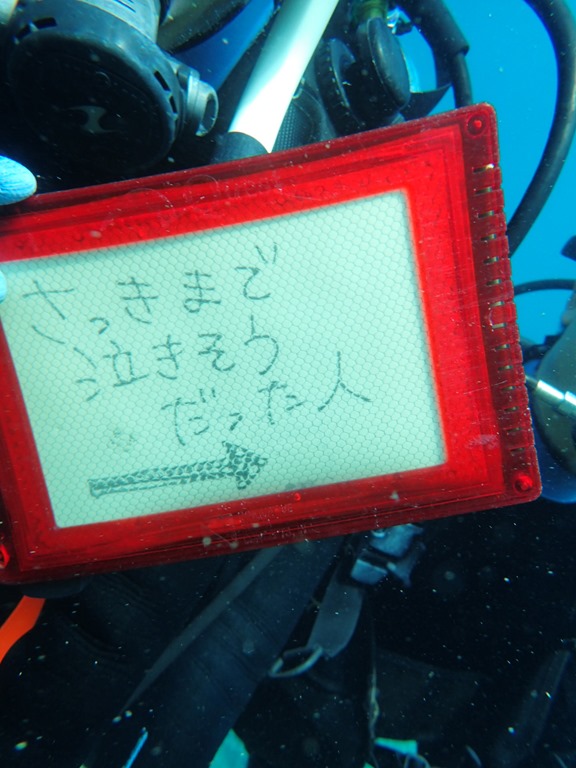 さっきまで
泣きそう
だった人